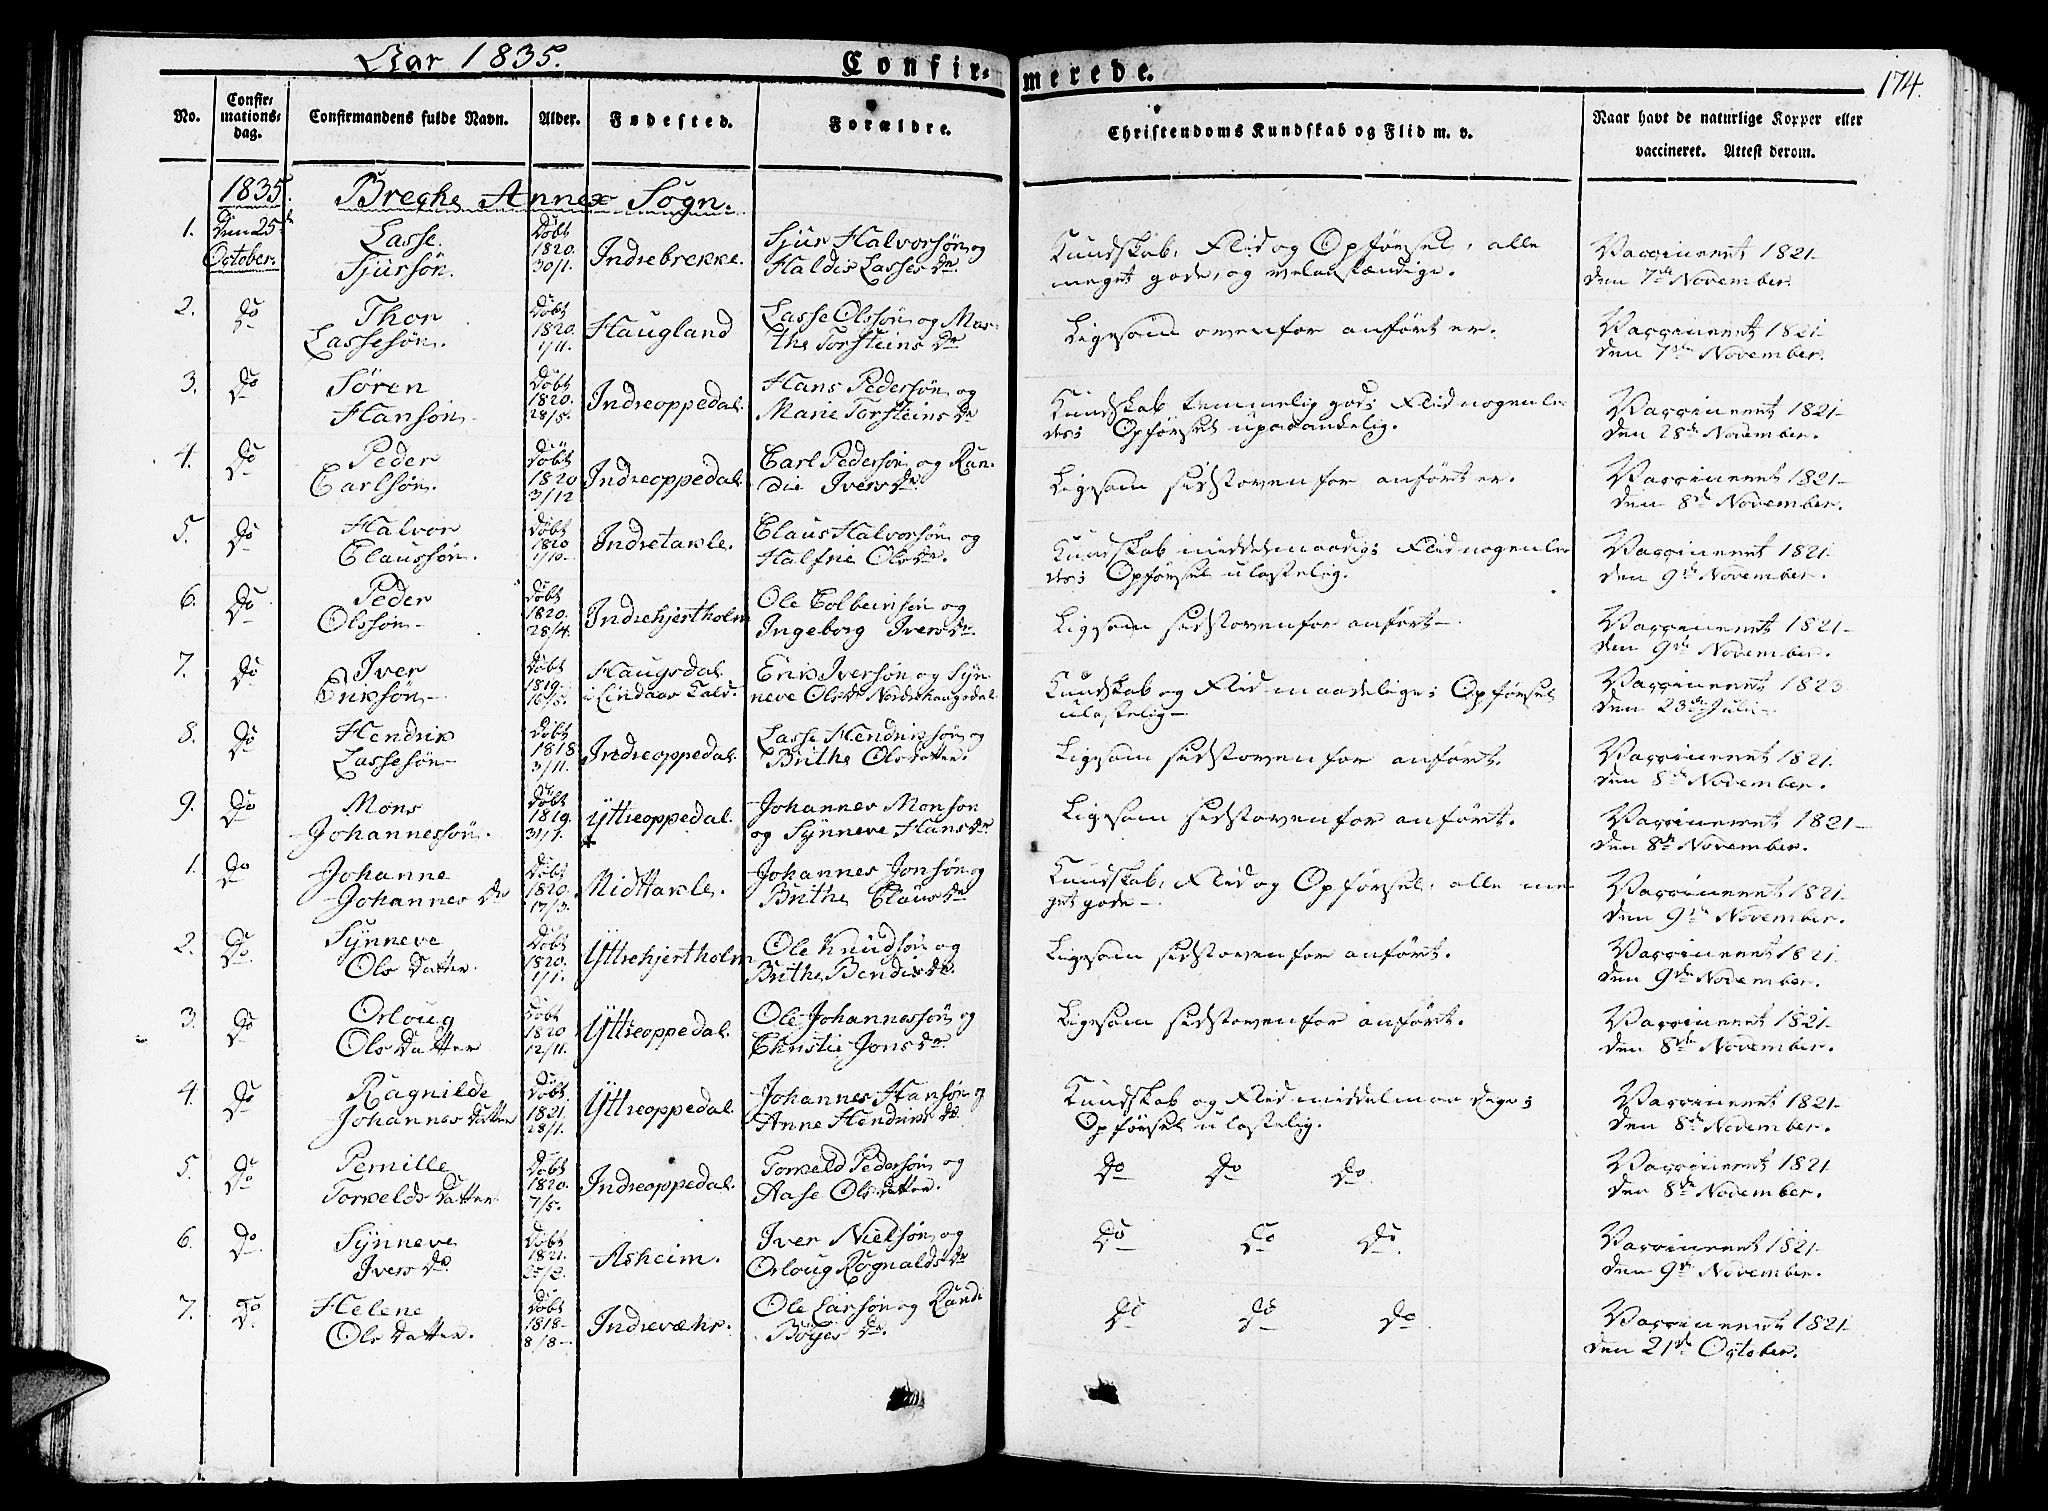 Aar 1835.
Confir-
merede.
174.
No.
Confir-
mations-
dag.
Confirmandens fulde Navn.
Alder.
Fødested.
Forældre.
Christendoms Kundskab og Flid m. v.
Naar havt de naturlige Kopper eller
vaccineret. Attest derom.
1835. Brecke Annex Sogn.
1. Den 25de October. Lasse Sjursön. Döbt 1820. 30/1. Indrebrekke. Sjur Halvorsön og Haldis Lasses Dr. Kundskab, Flid og Opførsel, alle meget gode, og velanstændige. Vaccineret 1821. den 7de November.
2. Do Thor Lassesön. Döbt 1820. 1/11. Haugland Lasse Olssön og Marthe Torsteins Dr Ligesom ovenfor anført er. Vaccineret 1821. den 7de November.
3. Do Sören Hansön. Döbt 1820. 28/5. Indreoppedal. Hans Pedersön og Marie Torsteins Dr Kundskab temmelig god; Flid nogenledes; Opførsel upaaandelig. Vaccineret 1821. den 28de November.
4. Do Peder Carlsön. Döbt 1820 3/12 Indreoppedal. Carl Pedersön og Randie Ivers Dr. Ligesom sidstovenfor anført er. Vaccineret 1821. den 8de November.
5. Do Halvor Claussön. Döbt 1820 1/10. Indretakle. Claus Halvorsön og Halfrie Ols Dr. Kundskab middelmaadig; Flid nogenledes; Opførsel ulastelig. Vaccineret 1821. den 9de November.
6. Do Peder Olssön. Döbt 1820. 28/4. Indrehjertholm Ole Colbeinsön og Ingeborg Ivers Dr. Ligesom sidstovenfor anført. Vaccineret 1821. den 9de November.
7. Do Iver Eriksön. Döbt 1819. 16/5. Haugsdal i Lindaas Cald. Erik Iversön og Synneve Ols Dr Nordrehaugsdal. Kundskab og Flid maadelige; Opførsel ulastelig. Vaccineret 1823. den 23de Julii.
8. Do Hendrik Lassesön. Döbt 1818. 3/11. Indreoppedal. Lasse Hendriksön og Brithe Olsdatter. Ligesom sidstovenfor anført. Vaccineret 1821. den 8de November.
9. Do Mons Johannessön. Döbt 1819. 31/1. Yttreoppedal. Johannes Monsön og Synneve Hans Dr. Ligesom sidstovenfor anført. Vaccineret 1821. den 8de November.
1. Do Johanne Johannes Dr Döbt 1820. 17/3. Midttakle. Johannes Jonsön og Brithe Claus Dr Kundskab, Flid og Opførsel, alle meget gode. Vaccineret 1821. den 9de November.
2. Do Synneve Ols Datter. Döbt 1820. 1/1. Yttrehjertholm Ole Knudsön og Brithe Bendix Dr. Ligesom sidstovenfor anført. Vaccineret 1821. den 9de November.
3. Do Orloug Ols Datter Döbt 1820 12/11. Yttreoppedal. Ole Johannessön og Christie Jons Dr. Ligesom sidstovenfor anført. Vaccineret 1821. den 8de November.
4. Do Ragnilde Johannes Datter Döbt. 1821. 28/1. Yttreoppedal. Johannes Hansön og Anne Hendriks Dr Kundskab og Flid middelmaadige; Opførsel ulastelig. Vaccineret 1821. den 8de November.
5. Do Pernille Torkelds Datter. Döbt 1820. 7/5. Indreoppedal. Torkeld Pedersön og Aase Olsdatter. Do Do Do. Vaccineret 1821 den 8de November.
6. Do Synneve Ivers Dr. Döbt 1821. Asheim. Iver Nielsön og Orloug Rognalds Dr Do Do Do. Vaccineret 1821. den 9de November.
7. Do Helene Ols Datter. Döbt 1818. 8/8. Indrevæhr. Ole Larsön og Randi Böyes Dr. Do Do Do. Vaccineret 1821. den 21de October.